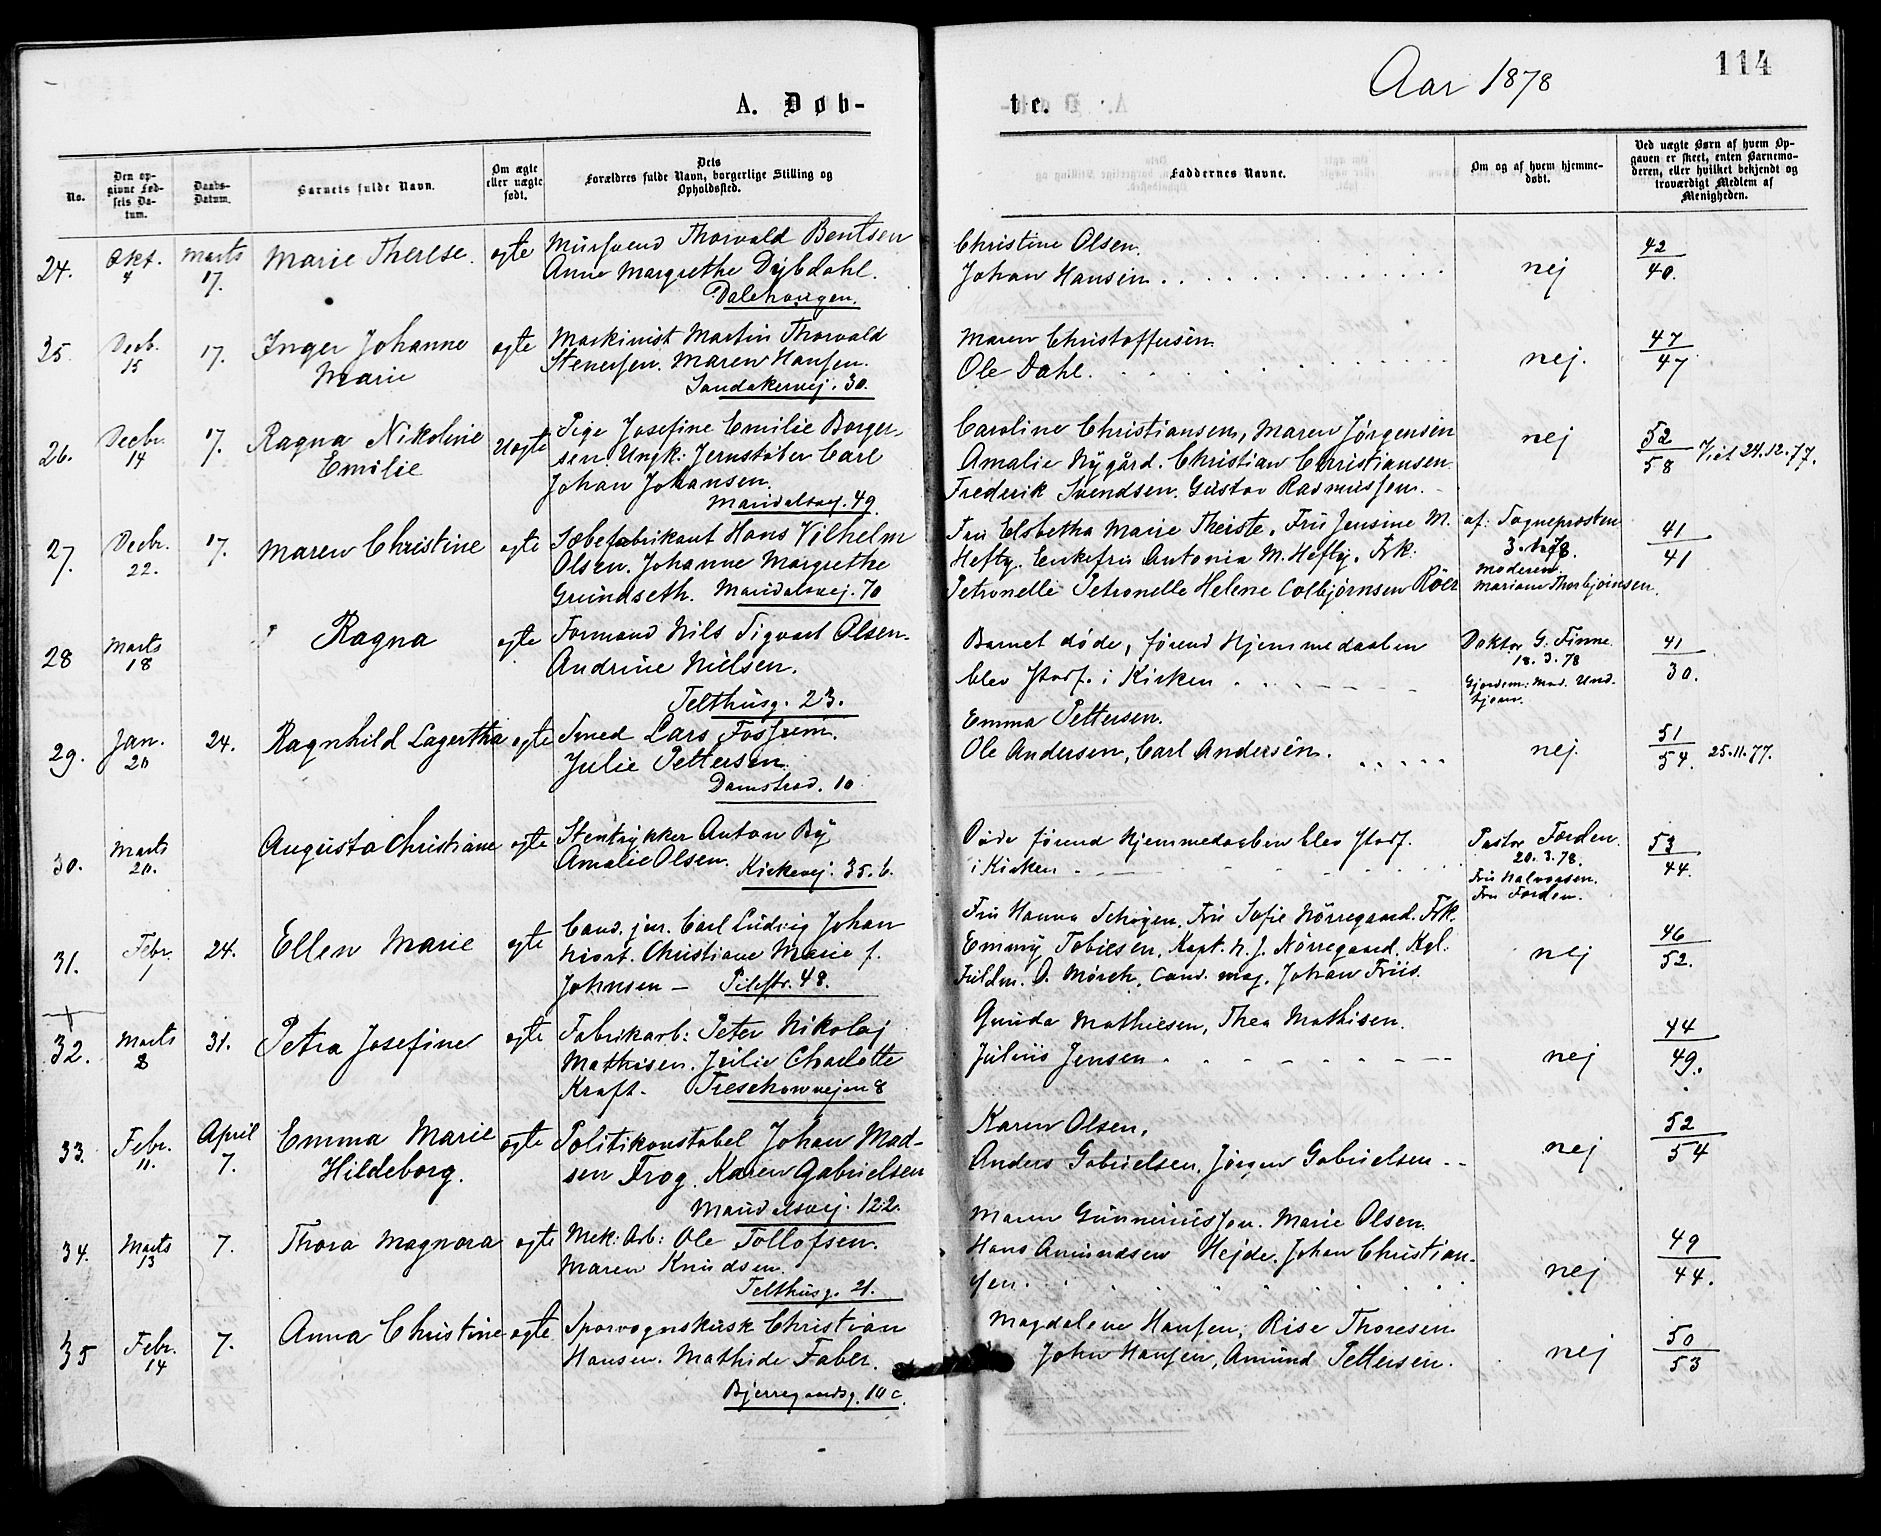 Aar 1878
114
A. Døb-
te.
No.
Den op-
givne Fød-
sels Da-
tum.
Daabs-
Datum.
Barnets fulde Navn.
Om ægte
eller uægte
født.
Dets
Forældres fulde Navn, borgerlige Stilling og
Opholdssted.
Faddernes Navne.
Om og af hvem hjemme-
døbt.
Ved uægte Børn af hvem Op-
gaven er skeet, enten Barnemo-
deren, eller hvilket bekjendt og
troværdigt Medlem af
Menigheden.
24. Okt. 4 Marts 17. Marie Therese. ægte Mursvend Thorvald Bentsen
Anne Margrethe Dybdahl.
Dalehaugen.
Christine Olsen.
Johan Hansen.
nej
42
40.
25. Decb. 15 17. Inger Johanne
Marie
ægte Maskinist Martin Thorvald
Stenersen. Maren Hansen.
Sandakervej. 30.
Maren Christoffersen.
Ole Dahl.
nej.
47
47
26. Decbr. 14 17. Ragna Nikoline
Emilie
uægte Pige Josefine Emilie Borger-
sen. Ungk: Jernstøber Carl
Johan Johansen.
Maridalsvej. 49.
Caroline Christiansen, Maren Jørgensen
Amalie Nygård. Christian Christiansen.
Frederik Svendsen. Gustav Rasmussen.
nej
52
58
24.12.77.
27. Decbr. 22. 17. Maren Christine ægte Sæbefabrikant Hans Vilhelm
Olsen. Johanne Margrethe
Grundseth. Maridalsvej. 70
Fru Elsbetha Marie Theiste. Fru Jensine M.
Heftÿ. Enkefru Antonia M. Heftÿ. Frk:
Petronelle Petronelle Helene Colbjørnsen Röer
af: Sognepresten
Moderen.
Mariane Thorbjørnsen.
41
41
28 Marts 18 Ragna ægte Formand Nils Sigvart Olsen.
Andrine Nielsen.
Telthusg. 23.
Barnet døde, førend Hjemmedaaben
blev stadf. i Kirken
Doktor G. Finne.
18.3.78
Gjordem: Mad. Und-
41
30.
29. Jan. 20 24. Ragnhild Lagertha ægte Smed Lars Fosheim.
Julie Pettersen.
Damstræd. 10
Emma Pettersen.
Ole Andersen, Carl Andersen.
nej.
51
54. 25.11.77.
30. Marts 20. Augusta Christiane ægte Stentrykker Anton Bÿ
Amalie Olsen. Kirkevej. 35.b.
Døde førend Hjemmedaaben blev stadf.
i Kirken
Pastor Færden.
20.3.78.
Fru Halvorsen.
Fru Færden.
53
44.
31. Febr. 1 24. Ellen Marie ægte Cand. jur. Carl Ludvig Johan
Hiort. Christiane Marie f.
Johnsen – Pilestr. 48.
Fru Hanna Schøyen, Fru Sofie Nörregaard. Frk.
Emmy Tobiesen, Kapt. N. J. Nörregaard. Kgl.
Fuldm. O. Mörch, Cand. mag. Johan Friis.
nej
46
52.
32. Marts 8 31. Petra Josefine ægte Fabrikarb: Peter Nikolaj
Mathisen. Julie Charlotte
Kraft. Treschowsvejen 8
Gunda Mathiesen, Thea Mathisen.
Julius Jensen
nej
44
49.
33. Febr. 11. April 7. Emma Marie
Hildeborg.
ægte Politikonstabel Johan Mad-
sen Frog. Karen Gabrielsen
Maridalsvej. 122.
Karen Olsen,
Anders Gabrielsen, Jørgen Gabrielsen
nej
52
54
34. Marts 13 7. Thora Magnora ægte Mek: Arb: Ole Tollofsen.
Maren Knudsen.
Telthusg. 21.
Maren Gunneriussen. Marie Olsen.
Hans Amundsen Hejde. Johan Christian-
sen.
nej
49
44.
35 Febr. 14 7. Anna Christine ægte Sporvognskusk Christian
Hansen. Mathilde Faber.
Bjerregaardsg. 10 c.
Magdalene Hansen, Rise Thoresen
John Hansen, Amund Pettersen.
nej
50
53